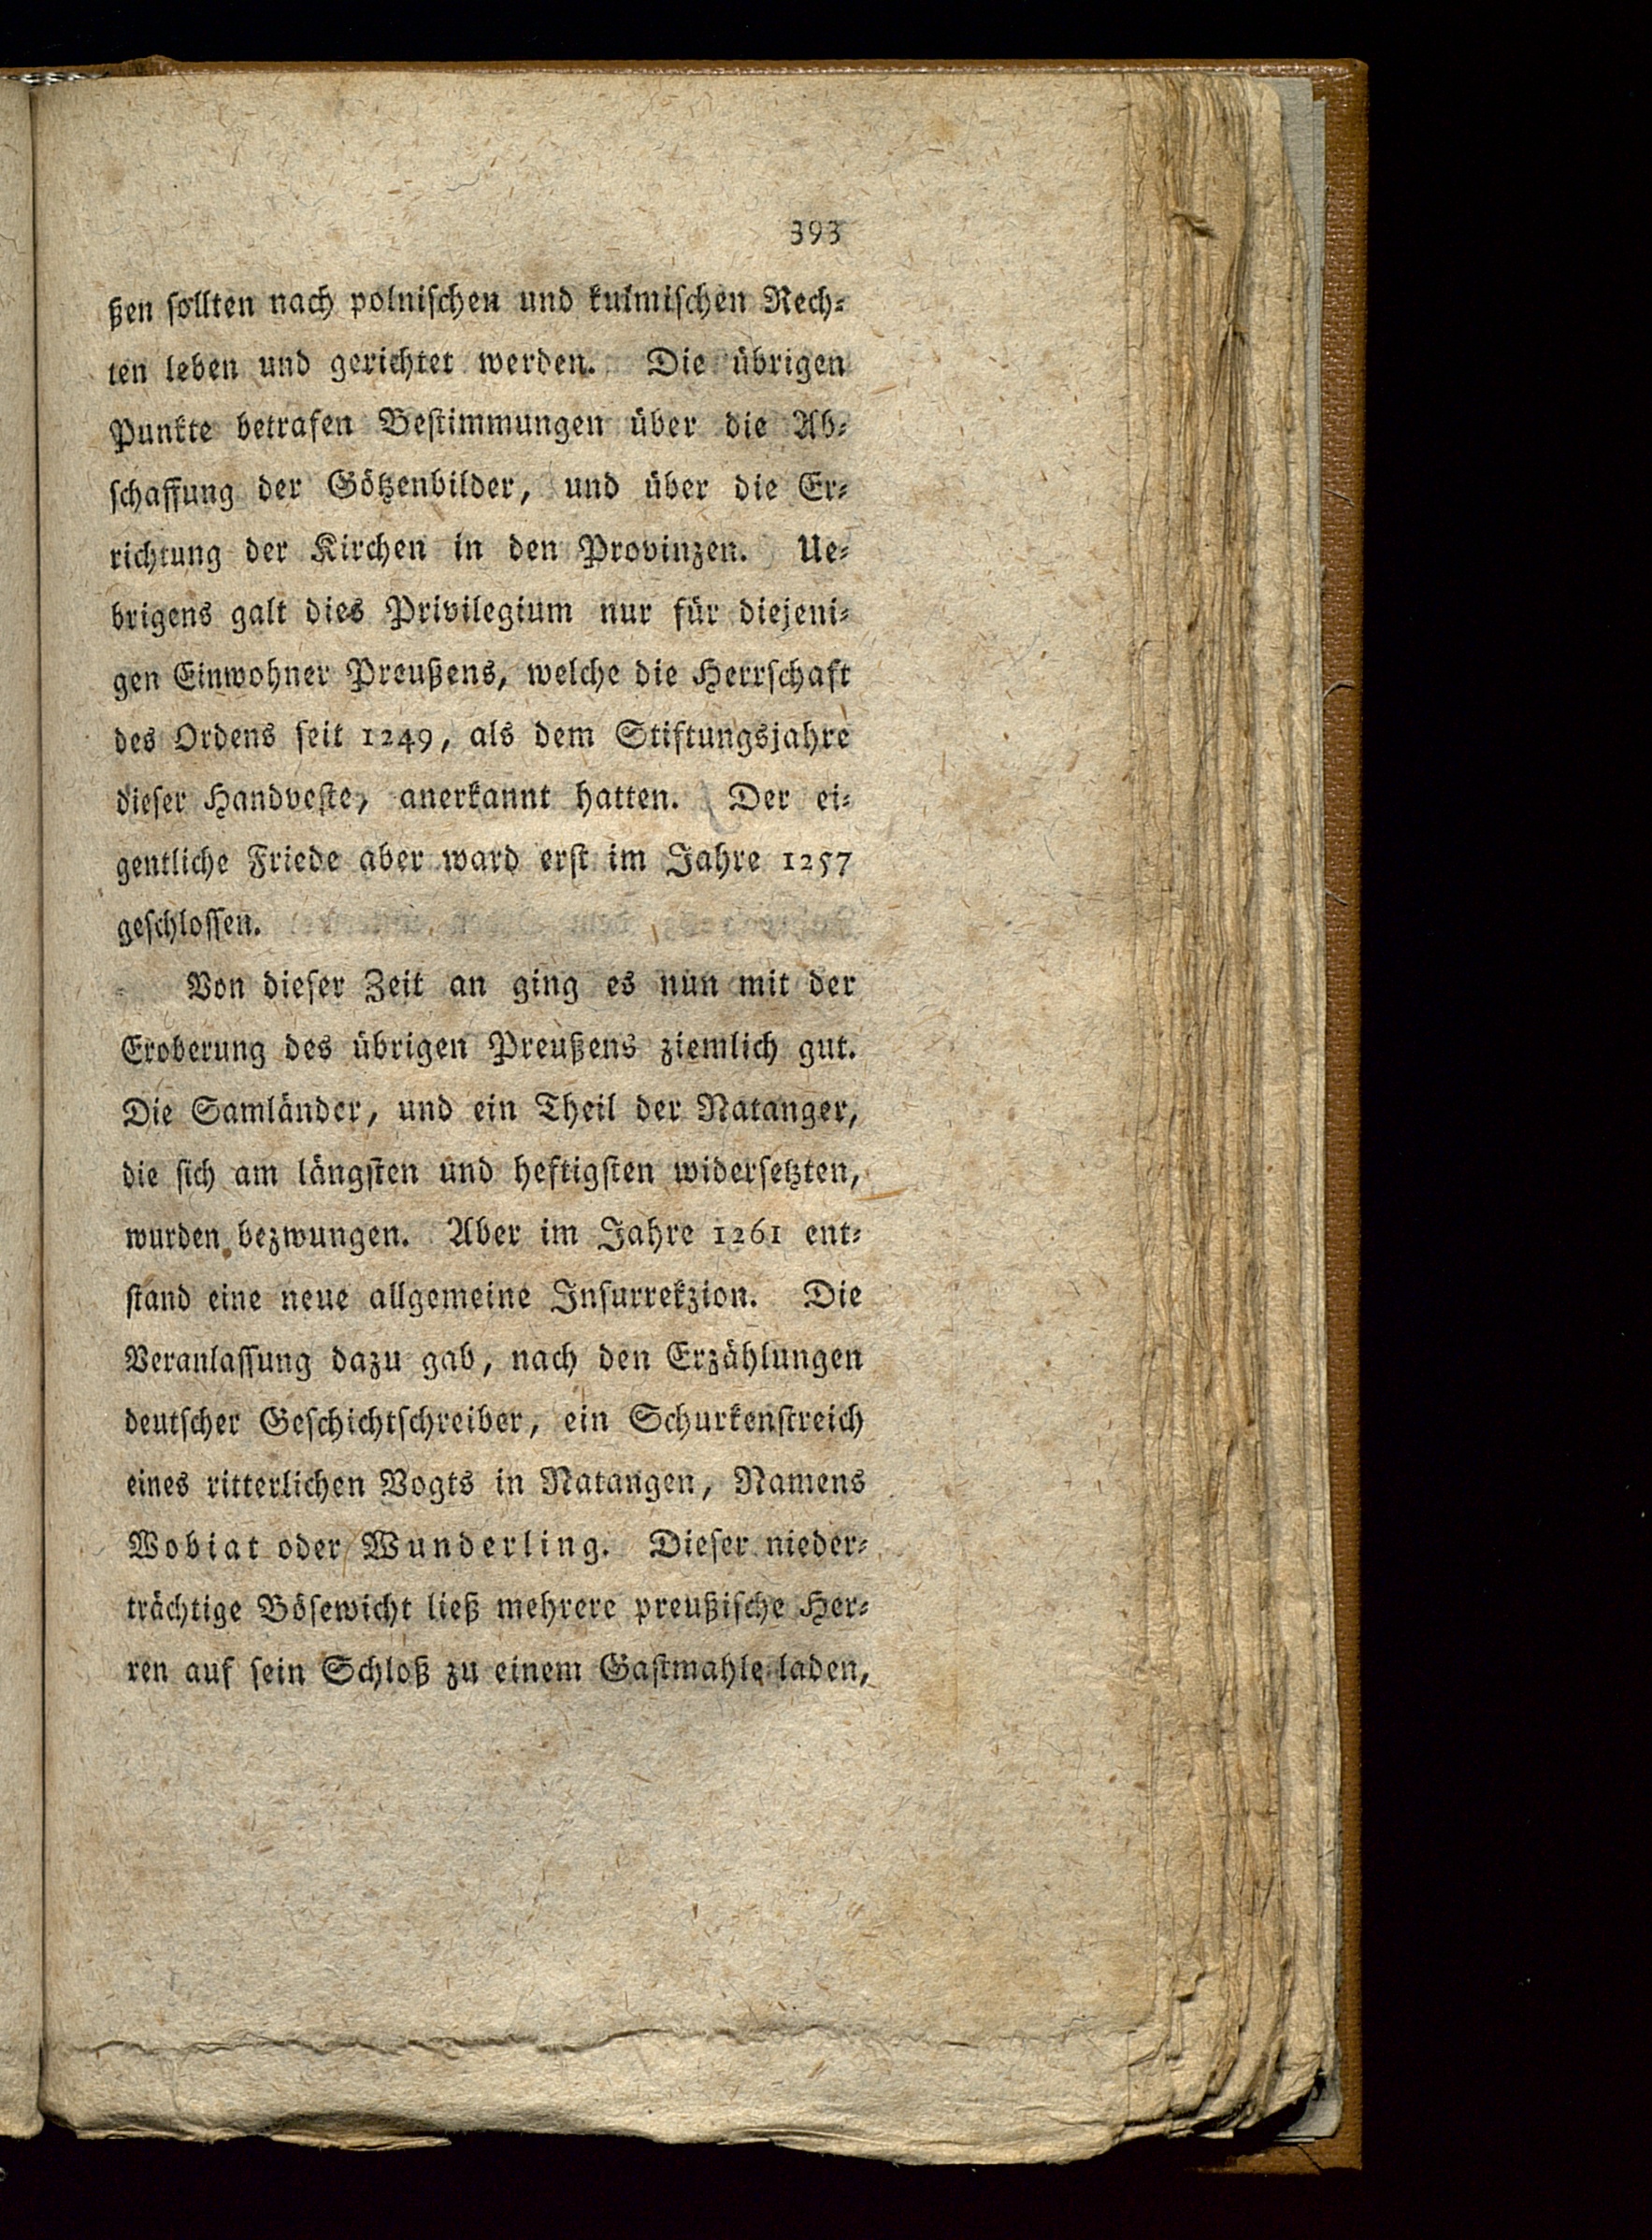 393
ßen sollten nach polnischen und kulmischen Rech-
ten leben und gerichtet werden. Die übrigen
Punkte betrafen Bestimmungen über die Ab-
schaffung der Götzenbilder, und über die Er-
richtung der Kirchen in den Provinzen. Ue-
brigens galt dies Privilegium nur für diejeni-
gen Einwohner Preußens, welche die Herrschaft
des Ordens seit 1249, als dem Stiftungsjahre
dieser Handveste, anerkannt hatten. Der ei-
gentliche Friede aber ward erst im Jahre 1257
geschlossen.
Von dieser Zeit an ging es nun mit der
Eroberung des übrigen Preußens ziemlich gut.
Die Samländer, und ein Theil der Natanger,
die sich am längsten und heftigsten widersetzten,
wurden bezwungen. Aber im Jahre 1261 ent-
stand eine neue allgemeine Insurrekzion. Die
Veranlassung dazu gab, nach den Erzählungen
deutscher Geschichtschreiber, ein Schurkenstreich
eines ritterlichen Vogts in Natangen, Namens
Wobiat oder Wunderling. Dieser nieder-
trächtige Bösewicht ließ mehrere preußische Her-
ren auf sein Schloß zu einem Gastmahle laden,